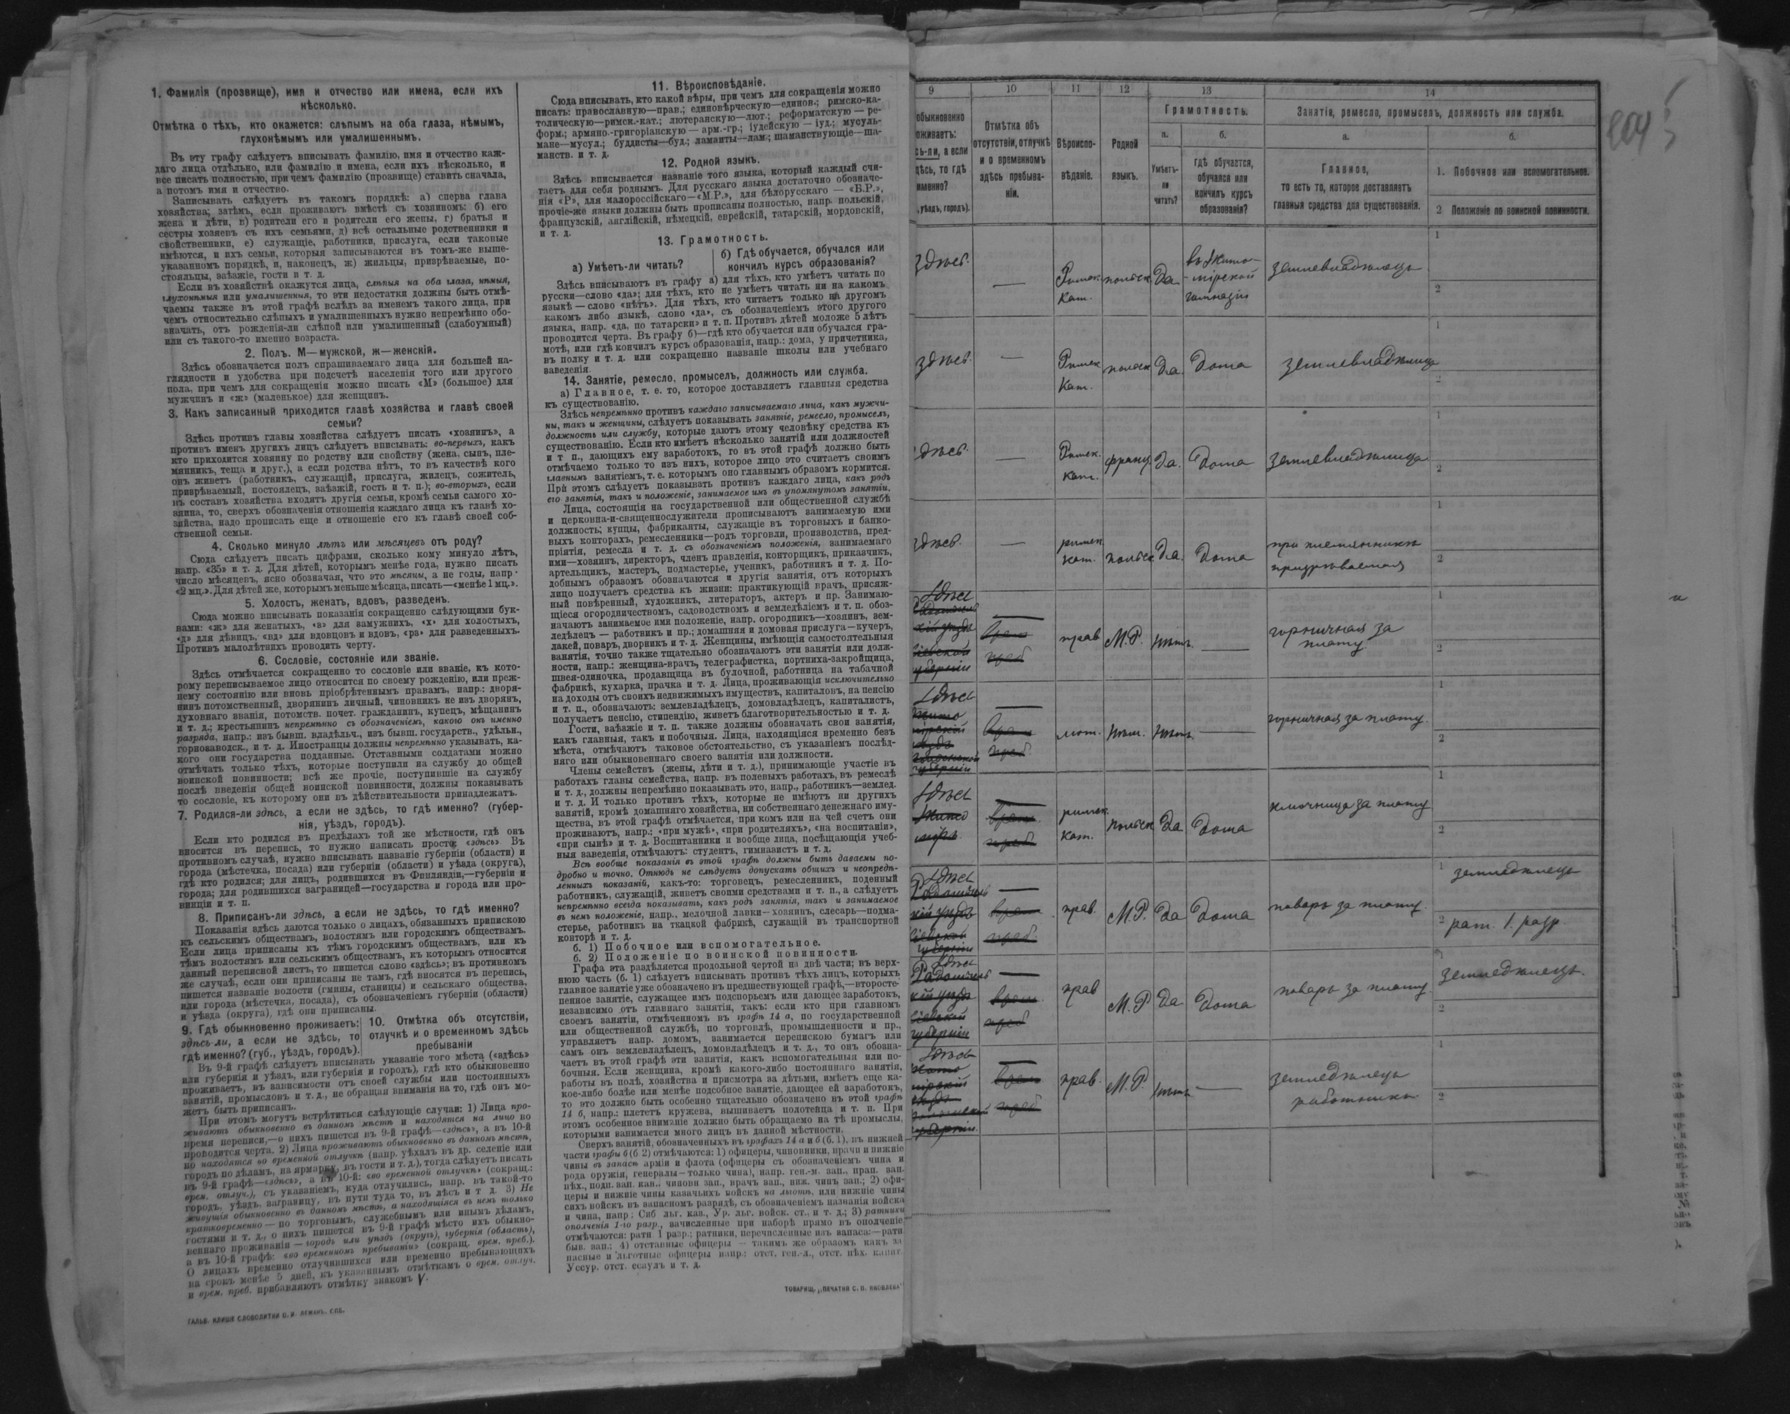 1. Фамилія (прозвище), имя и отчество или имена, если ихъ
нѣсколько.
Отмѣтка о тѣхъ, кто окажется: слѣпымъ на оба глаза, нѣмымъ,
глухонѣмымъ или умалишеннымъ.
Въ эту графу слѣдуетъ вписывать фамилію, имя и отчество каж-
даго лица отдѣльно, или фамилію и имена, если ихъ нѣсколько, и
все писать полностью, при чемъ фамилію (прозвище) ставить сначала,
а потомъ имя и отчество.
Записывать слѣдуетъ въ такомъ порядкѣ: а) сперва глава
хозяйства; затѣмъ, если проживаютъ вмѣстѣ съ хозяиномъ: б) его
жена и дѣти, в) родители его и родители его жены, г) братья и
сестры хозяевъ съ ихъ семьями, д) всѣ остальные родственники и
свойственники, е) служащіе, работники, прислуга, если таковые
имѣются, и ихъ семьи, которыя записываются въ томъ-же выше-
указанномъ порядкѣ, и, наконецъ, ж) жильцы, призрѣваемые, по-
стояльцы, заѣзжіе, гости и т. д.
Если въ хозяйствѣ окажутся лица, слѣпыя на оба глаза, нѣмыя,
глухонѣмыя или умалишенныя, то эти недостатки должны быть отмѣ-
чаемы также въ этой графѣ вслѣдъ за именемъ такого лица, при
чемъ относительно слѣпыхъ и умалишенныхъ нужно непремѣнно обо-
значать, отъ рожденія-ли слѣпой или умалишенный (слабоумный)
или съ такого-то именно возраста.
2. Полъ. М—мужской, ж—женскій.
Здѣсь обозначается полъ спрашиваемаго лица для большей на-
глядности и удобства при подсчетѣ населенія того или другого
пола, при чемъ для сокращенія можно писать «М» (большое) для
мужчинъ и «ж» (маленькое) для женщинъ.
3. Какъ записанный приходится главѣ хозяйства и главѣ своей
семьи?
Здѣсь противъ главы хозяйства слѣдуетъ писать «хозяинъ», а
противъ именъ другихъ лицъ слѣдуетъ вписывать: во-первыхъ, какъ
кто приходится хозяину по родству или свойству (жена, сынъ, пле-
мянникъ, теща и друг.), а если родства нѣтъ, то въ качествѣ кого
онъ живетъ (работникъ, служащій, прислуга, жилецъ, сожитель,
призрѣваемый, постоялецъ, заѣзжій, гость и т. п.); во-вторыхъ, если
въ составъ хозяйства входятъ другія семьи, кромѣ семьи самого хо-
зяина, то, сверхъ обозначенія отношенія каждаго лица къ главѣ хо-
зяйства, надо прописать еще и отношеніе его къ главѣ своей соб-
ственной семьи.
4. Сколько минуло лѣтъ или мѣсяцевъ отъ роду?
Сюда слѣдуетъ писать цифрами, сколько кому минуло лѣтъ,
напр. «35» и т. д. Для дѣтей, которымъ менѣе года, нужно писать
число мѣсяцевъ, ясно обозначая, что это мѣсяцы, а не годы, напр.
«2 мц.». Для дѣтей же, которымъ меньше мѣсяца, писать—«менѣе 1 мц.».
5. Холостъ, женатъ, вдовъ, разведенъ.
Сюда можно вписывать показанія сокращенно слѣдующими бук-
вами: «ж» для женатыхъ, «з» для замужнихъ, «х» для холостыхъ,
«д» для дѣвицъ, «вд» для вдовцовъ и вдовъ, «ра» для разведенныхъ.
Противъ малолѣтнихъ проводить черту.
6. Сословіе, состояніе или званіе.
Здѣсь отмѣчается сокращенно то сословіе или званіе, къ кото-
рому переписываемое лицо относится по своему рожденію, или преж-
нему состоянію или вновь пріобрѣтеннымъ правамъ, напр.: дворя-
нинъ потомственный, дворянинъ личный, чиновникъ не изъ дворянъ,
духовнаго званія, потомств. почет. гражданинъ, купецъ, мѣщанинъ
и т. д.; крестьянинъ непремѣнно съ обозначеніемъ, какого онъ именно
разряда, напр.: изъ бывш. владѣльч., изъ бывш. государств., удѣльн.,
горнозаводск., и т. д. Иностранцы должны непремѣнно указывать, ка-
кого они государства подданные. Отставными солдатами можно
отмѣчать только тѣхъ, которые поступили на службу до общей
воинской повинности; всѣ же прочіе, поступившіе на службу
послѣ введенія общей воинской повинности, должны показывать
то сословіе, къ которому они въ дѣйствительности принадлежатъ.
7. Родился-ли здѣсь, а если не здѣсь, то гдѣ именно? (губер-
нія, уѣздъ, городъ).
Если кто родился въ предѣлахъ той же мѣстности, гдѣ онъ
вносится въ перепись, то нужно написать просто «здѣсь». Въ
противномъ случаѣ, нужно вписывать названіе губерніи (области) и
города (мѣстечка, посада) или губерніи (области) и уѣзда (округа),
гдѣ кто родился; для лицъ, родившихся въ Финляндіи,—губерніи и
города; для родившихся заграницей—государства и города или про-
винціи и т. п.
8. Приписанъ-ли здѣсь, а если не здѣсь, то гдѣ именно?
Показанія здѣсь даются только о лицахъ, обязанныхъ припискою
къ сельскимъ обществамъ, волостямъ или городскимъ обществамъ.
Если лица приписаны къ тѣмъ городскимъ обществамъ, или къ
тѣмъ волостямъ или сельскимъ обществамъ, къ которымъ относится
данный переписной листъ, то пишется слово «здѣсь»; въ противномъ
же случаѣ, если они приписаны не тамъ, гдѣ вносятся въ перепись,
пишется названіе волости (гмины, станицы) и сельскаго общества,
или города (мѣстечка, посада), съ обозначеніемъ губерніи (области)
и уѣзда (округа), гдѣ они приписаны.
9. Гдѣ обыкновенно проживаетъ:
здѣсь-ли, а если не здѣсь, то
гдѣ именно? (губ., уѣздъ, городъ).
10. Отмѣтка объ отсутствіи,
отлучкѣ и о временномъ здѣсь
пребываніи
Въ 9-й графѣ слѣдуетъ вписывать указаніе того мѣста («здѣсь»
или губернія и уѣздъ, или губернія и городъ), гдѣ кто обыкновенно
проживаетъ, въ зависимости отъ своей службы или постоянныхъ
занятій, промысловъ и т. д., не обращая вниманія на то, гдѣ онъ мо-
жетъ быть приписанъ.
При этомъ могутъ встрѣтиться слѣдующіе случаи: 1) Лица про-
живаютъ обыкновенно въ данномъ мѣстѣ и находятся на лицо во
время переписи,—о нихъ пишется въ 9-й графѣ—«здѣсь», а въ 10-й
проводится черта. 2) Лица проживаютъ обыкновенно въ данномъ мѣстѣ,
но находятся во временной отлучкѣ (напр. уѣхалъ въ др. селеніе или
городъ по дѣламъ, на ярмарку, въ гости и т. д.), тогда слѣдуетъ писать
въ 9-й графѣ—«здѣсь», а въ 10-й: «во временной отлучкѣ» (сокращ.:
врем. отлуч.), съ указаніемъ, куда отлучились, напр. въ такой-то
городъ, уѣздъ, заграницу, въ пути туда то, въ лѣсъ и т д. 3) Не
живущія обыкновенно въ данномъ мѣстѣ, а находящіяся въ немъ только
кратковременно — по торговымъ, служебнымъ или инымъ дѣламъ,
гостями и т. д., о нихъ пишется въ 9-й графѣ мѣсто ихъ обыкно-
веннаго проживанія — городъ или уѣздъ (округъ), губернія (область),
а въ 10-й графѣ: «во временномъ пребываніи» (сокращ. врем. преб.).
О лицахъ временно отлучившихся или временно пребывающихъ
на срокъ менѣе 5 дней, къ указаннымъ отмѣткамъ о врем. отлуч.
и врем. преб. прибавляютъ отмѣтку знакомъ V.
11. Вѣроисповѣданіе.
Сюда вписывать, кто какой вѣры, при чемъ для сокращенія можно
писать: православную—прав.; единовѣрческую—единов.; римско-ка-
толическую—римск.-кат.; лютеранскую—лют.; реформатскую — ре-
форм.; армяно.-григоріанскую — арм.-гр.; іудейскую — іуд.; мусуль-
мане—мусул.; буддисты—буд.; ламаиты—лам; шаманствующіе—ша-
манств. и т. д.
12. Родной языкъ.
Здѣсь вписывается названіе того языка, который каждый счи-
таетъ для себя роднымъ. Для русскаго языка достаточно обозначе-
нія «Р», для малороссійскаго—«М.Р.», для бѣлорусскаго — «Б.Р.»,
прочіе-же языки должны быть прописаны полностью, напр. польскій,
французскій, англійскій, нѣмецкій, еврейскій, татарскій, мордовскій,
и т. д.
13. Грамотность.
а) Умѣетъ-ли читать?
б) Гдѣ обучается, обучался или
кончилъ курсъ образованія?
Здѣсь вписываютъ въ графу а) для тѣхъ, кто умѣетъ читать по
русски—слово «да»; для тѣхъ, кто не умѣетъ читать ни на какомъ
языкѣ — слово «нѣтъ». Для тѣхъ, кто читаетъ только на другомъ
какомъ либо языкѣ, слово «да», съ обозначеніемъ этого другого
языка, напр. «да, по татарски» и т. п. Противъ дѣтей моложе 5 лѣтъ
проводится черта. Въ графу б)—гдѣ кто обучается или обучался гра-
мотѣ, или гдѣ кончилъ курсъ образованія, напр.: дома, у причетника,
въ полку и т. д. или сокращенно названіе школы или учебнаго
заведенія.
14. Занятіе, ремесло, промыселъ, должность или служба.
а) Главное, т. е. то, которое доставляетъ главныя средства
къ существованію.
Здѣсь непремѣнно противъ каждаго записываемаго лица, какъ мужчи-
ны, такъ и женщины, слѣдуетъ показывать занятіе, ремесло, промыселъ,
должность или службу, которые даютъ этому человѣку средства къ
существованію. Если кто имѣетъ нѣсколько занятій или должностей
и т п., дающихъ ему заработокъ, то въ этой графѣ должно быть
отмѣчаемо только то изъ нихъ, которое лицо это считаетъ своимъ
главнымъ занятіемъ, т. е. которымъ оно главнымъ образомъ кормится.
При этомъ слѣдуетъ показывать противъ каждаго лица, какъ родъ
его занятія, такъ и положеніе, занимаемое имъ въ упомянутомъ занятіи.
Лица, состоящія на государственной или общественной службѣ
и церковно-и-священнослужители прописываютъ занимаемую ими
должность; купцы, фабриканты, служащіе въ торговыхъ и банко-
выхъ конторахъ, ремесленники—родъ торговли, производства, пред-
пріятія, ремесла и т. д. съ обозначеніемъ положенія, занимаемаго
ими—хозяинъ, директоръ, членъ правленія, конторщикъ, приказчикъ,
артельщикъ, мастеръ, подмастерье, ученикъ, работникъ и т. д. По-
добнымъ образомъ обозначаются и другія занятія, отъ которыхъ
лицо получаетъ средства къ жизни: практикующій врачъ, присяж-
ный повѣренный, художникъ, литераторъ, актеръ и пр. Занимаю-
щіеся огородничествомъ, садоводствомъ и земледѣліемъ и т. п. обоз-
начаютъ занимаемое ими положеніе, напр. огородникъ—хозяинъ, зем-
ледѣлецъ — работникъ и пр.; домашняя и домовая прислуга—кучеръ,
лакей, поваръ, дворникъ и т д. Женщины, имѣющія самостоятельныя
занятія, точно также тщательно обозначаютъ эти занятія или долж-
ности, напр.: женщина-врачъ, телеграфистка, портниха-закройщица,
швея-одиночка, продавщица въ булочной, работница на табачной
фабрикѣ, кухарка, прачка и т. д. Лица, проживающія исключительно
на доходы отъ своихъ недвижимыхъ имуществъ, капиталовъ, на пенсію
и т. п., обозначаютъ: землевладѣлецъ, домовладѣлецъ, капиталистъ,
получаетъ пенсію, стипендію, живетъ благотворительностью и т. д.
Гости, заѣзжіе и т. п. также должны обозначать свои занятія,
какъ главныя, такъ и побочныя. Лица, находящіяся временно безъ
мѣста, отмѣчаютъ таковое обстоятельство, съ указаніемъ послѣд-
няго или обыкновеннаго своего занятія или должности.
Члены семействъ (жены, дѣти и т. д.), принимающіе участіе въ
работахъ главы семейства, напр. въ полевыхъ работахъ, въ ремеслѣ
и т. д., должны непремѣнно показывать это, напр., работникъ—землед.
и т. д. И только противъ тѣхъ, которые не имѣютъ ни другихъ
занятій, кромѣ домашняго хозяйства, ни собственнаго денежнаго иму-
щества, въ этой графѣ отмѣчается, при комъ или на чей счетъ они
проживаютъ, напр.: «при мужѣ», «при родителяхъ», «на воспитаніи»,
«при сынѣ» и т. д. Воспитанники и вообще лица, посѣщающія учеб-
ныя заведенія, отмѣчаютъ: студентъ, гимназистъ и т. д.
Всѣ вообще показанія въ этой графѣ должны быть даваемы по-
дробно и точно. Отнюдь не слѣдуетъ допускать общихъ и неопредѣ-
ленныхъ показаній, какъ-то: торговецъ, ремесленникъ, поденный
работникъ, служащій, живетъ своими средствами и т. п., а слѣдуетъ
непремѣнно всегда показывать, какъ родъ занятія, такъ и занимаемое
въ немъ положеніе, напр., мелочной лавки—хозяинъ, слесарь—подма-
стерье, работникъ на ткацкой фабрикѣ, служащій въ транспортной
конторѣ и т. д.
б. 1) Побочное или вспомогательное.
б. 2) Положеніе по воинской повинности.
Графа эта раздѣляется продольной чертой на двѣ части; въ верх-
нюю часть (б. 1) слѣдуетъ вписывать противъ тѣхъ лицъ, которыхъ
главное занятіе уже обозначено въ предшествующей графѣ,—второсте-
пенное занятіе, служащее имъ подспорьемъ или дающее заработокъ,
независимо отъ главнаго занятія, такъ: если кто при главномъ
своемъ занятіи, отмѣченномъ въ графѣ 14 а, по государственной
или общественной службѣ, по торговлѣ, промышленности и пр.,
управляетъ напр. домомъ, занимается перепискою бумагъ или
самъ онъ землевладѣлецъ, домовладѣлецъ и т. д., то онъ обозна-
чаетъ въ этой графѣ эти занятія, какъ вспомогательныя или по-
бочныя. Если женщина, кромѣ какого-либо постояннаго занятія,
работы въ полѣ, хозяйства и присмотра за дѣтьми, имѣетъ еще ка-
кое-либо болѣе или менѣе подсобное занятіе, дающее ей заработокъ,
то это должно быть особенно тщательно обозначено въ этой графѣ
14 б, напр.: плететъ кружева, вышиваетъ полотенца и т. п. При
этомъ особенное вниманіе должно быть обращаемо на тѣ промыслы,
которыми занимается много лицъ въ данной мѣстности.
Сверхъ занятій, обозначенныхъ въ графахъ 14 а и б (б. 1), въ нижней
части графы б (б 2) отмѣчаются: 1) офицеры, чиновники, врачи и нижніе
чины въ запасѣ арміи и флота (офицеры съ обозначеніемъ чина и
рода оружія, генералы—только чина), напр. ген.-м. зап., прап. зап.
пѣх., подп. зап. кав.: чиновн зап., врачъ зап., ниж. чинъ зап.; 2) офи-
церы и нижніе чины казачьихъ войскъ на льготѣ, или нижніе чины
сихъ войскъ въ запасномъ разрядѣ, съ обозначеніемъ названія войска
и чина, напр: Сиб льг. каз., Ур. льг. войск. ст. и т. д.; 3) ратники
ополченія 1-го разр., зачисленные при наборѣ прямо въ ополченіе
отмѣчаются: ратн 1 разр.; ратники, перечисленные изъ запаса:—ратн
быв. зап.; 4) отставные офицеры — такимъ же образомъ какъ за
пасные и льготные офицеры напр.: отст. ген.-л., отст. пѣх. капит.
Уссур. отст. есаулъ и т. д.
ТОВАРИЩ. „ПЕЧАТНЯ С. П. ЯКОВЛЕВА"
ГАЛЬВ. КЛИШЕ СЛОВОЛИТНИ О. И. ЛЕМАНЪ. СПБ.
9 10 11 12 13 14
обыкновенно
оживаетъ:
сь-ли, а если
дѣсь, то гдѣ
именно?
уѣздъ, городъ).
Отмѣтка объ
отсутствіи, отлучкѣ
и о временномъ
здѣсь пребыва-
ніи.
Вѣроиспо-
вѣданіе.
Родной
языкъ.
Грамотность.
а. б.
Умѣетъ-
ли
читать?
гдѣ обучается,
обучался или
кончилъ курсъ
образованія?
Занятія, ремесло, промыселъ, должность или служба.
а. б.
Главное,
то есть то, которое доставляетъ
главныя средства для существованія.
1. Побочное или вспомогательное.
2 Положеніе по воинской повинности.
204
здѣсь — Римск. Кат. польск. Да въ Жито- мірской гимназіи землевладѣлецъ 1 2
здѣсь — Римск Кат. польск Да Дома землевладѣлица 1 2
здѣсь — Римск. Кат. франц. Да. Дома землевладѣлица 1 2
здѣсь — римск. кат. польск Да. Дома при племянникѣ призрѣваемая 1 2
Здѣсь — врем. преб прав М.Р. нѣтъ — горничная за плату 1 2
Здѣсь — врем преб лют. нѣм. нѣтъ — горничная за плату. 1 2
Здѣсь — врем. преб римск. кат. польск Да Дома ключница за плату 1 2
Здѣсь Радомысль кій уѣздъ Кіевской губерніи — врем преб прав М.Р. Да Дома поваръ за плату 1 земледѣлецъ 2 рат. 1. разр
Здѣсь Радомысль кій уѣздъ Кіевской губерніи — врем преб прав М.Р Да Дома поваръ за плату. земледѣлецъ. 2
Здѣсь — врем преб прав. М.Р. нѣтъ — земледѣлецъ работникъ 1 2